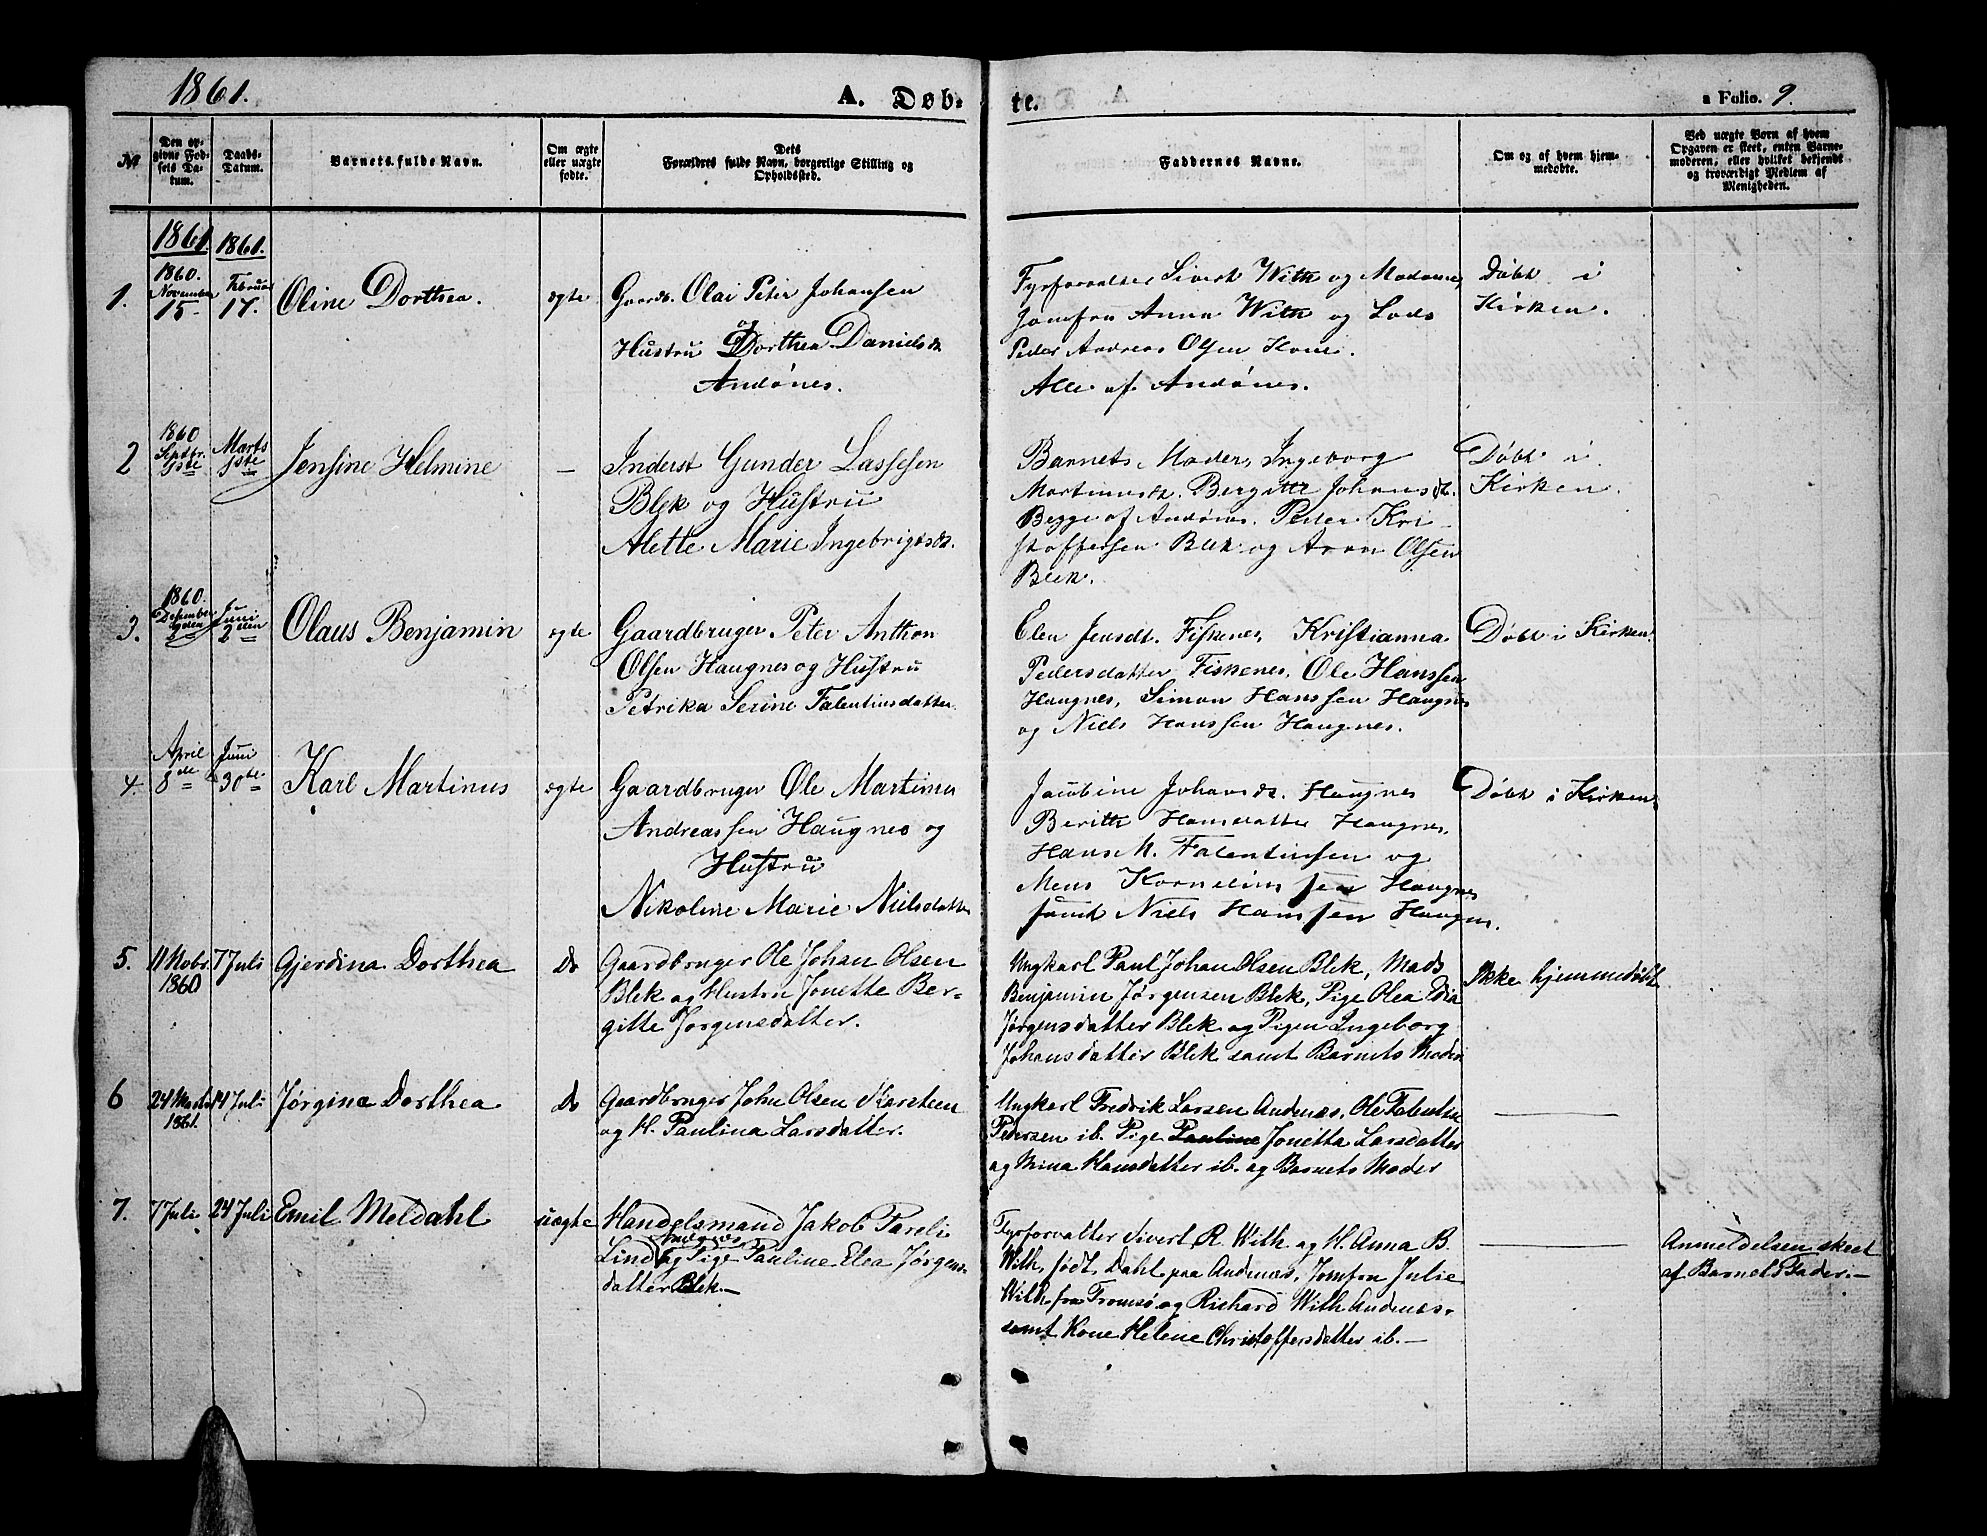 1861.
A. Døb-
te.
a Folio. 9.
№
Den op-
givne Fød-
sels Da-
tum.
Daabs-
Datum.
Barnets fulde Navn.
Om ægte
eller uægte
fødte.
Dets
Forældres fulde Navn, borgerlige Stilling og
Opholdssted.
Faddernes Navne.
Om og af hvem hjem-
medøbte.
Ved uægte Born af hvem
Opgaven er skeet, enten Barne-
moderen, eller hvilket bekjendt
og troværdigt Medlem af
Menigheden.
1861.
1861.
1.
1860.
November
15
Februar
17.
Oline Dorthea.
ægte
Gaardb. Olai Peter Johansen
og
Hustru Dorthea Danielsdt.
Andønes.
Fyrforvalter Sivert With og Madame,
Jomfru Anna With og Lods
Peder Andreas Olsen Hane.
Alle af Andønes.
Døbt i
Kirken.
2
1860
Septbr.
9ste
Marts
1ste
Jensine Helmine
–
Inderst Gunder Lassesen
Blek og Hustru
Alette Marie Ingebrigtsdt.
Barnets Moder, Ingeborg
Martinusdt. Bergitte Johansdt.
Begge af Andønes. Peder Kri-
stoffersen Blek og Aron Olsen
Blek.
Døbt i
Kirken.
3.
1860.
Desember
2den
Juni
2den
Olaus Benjamin
ægte
Gaardbruger Peter Anthon
Olsen Haugnes og Hustru
Petrika Serine Falentinsdatter
Elen Jensdt. Fiskenes, Kristianna
Pedersdatter Fiskenes, Ole Hanssen
Haugnes, Simon Hanssen Haugnes
og Niels Hanssen Haugnes.
Døbt i Kirken.
4.
April
8de
Juni
30te
Karl Martinus
ægte
Gaardbruger Ole Martinus
Andreassen Haugnes og
Hustru
Nikoline Marie Nielsdatter
Jacobine Johansdt. Haugnes
Berith Hansdatter Haugnes,
Hans M. Falentinsen og
Mens Korneliussen Haugnes
samt Niels Hanssen Haugnes.
Døbt i Kirken
5.
11 Nobr.
1860
7 Juli
Gjerdina Dorthea
Do
Gaardbruger Ole Johan Olsen
Blek og Hustru Jonette Ber-
gitte Jørgensdatter.
Ungkarl Paul Johan Olsen Blek, Mads
Benjamin Jørgensen Blek, Pige Olea Edia
Jørgensdatter Blek og Pigen Ingeborg
Johansdatter Blek samt Barnets Moder
Ikke hjemmedøbt
6
24 Marts
1861.
14 Juli
Jørgine Dorthea
Do
Gaardbruger John Olsen Karsteen
og H. Paulina Larsdatter.
Ungkarl Fredrik Larsen Andenæs, Ole Falentin
Pedersen ib. Pige Pauline Jonetta Larsdatter
og Mina Hansdatter ib. og Barnets Moder
7.
7 Juli
24 Juli
Emil Meldahl
uægte
Handelsmand Jakob Pareli
Andenæs
Lind og Pige Pauline Elea Jørgens-
datter Blek.–
Fyrforvalter Sivert R. With og H. Anna B.
With, født Dahl paa Andenæs, Jomfru Julie
With fra Tromsø og Richard With Andenæs.
samt Kone Helene Christoffersdatter ib.–
Anmeldelsen skeet
af Barnets Fader.–